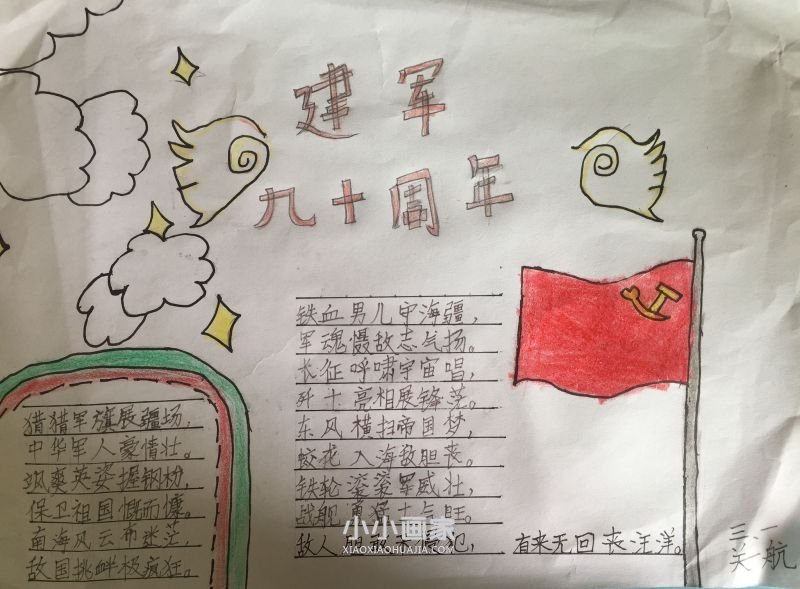 建军
九十周年
铁血男儿守海疆,
军魂慑敌志气扬。
长征呼啸宇宙唱,
歼十亮相展锋芒。
东风横扫帝国梦,
蛟龙入海敌胆丧。
铁轮滚滚军威壮,
战舰勇猛士气旺。
敌人胆敢来侵犯, 有来无回丧汪洋。
猎猎军旗展疆场,
中华军人豪情壮。
飒爽英姿握钢枪,
保卫祖国慨而慷。
南海风云布迷茫,
敌国挑衅极疯狂。
三.一
关一航
小小画家
XIAOXIAOHUAJIA.COM